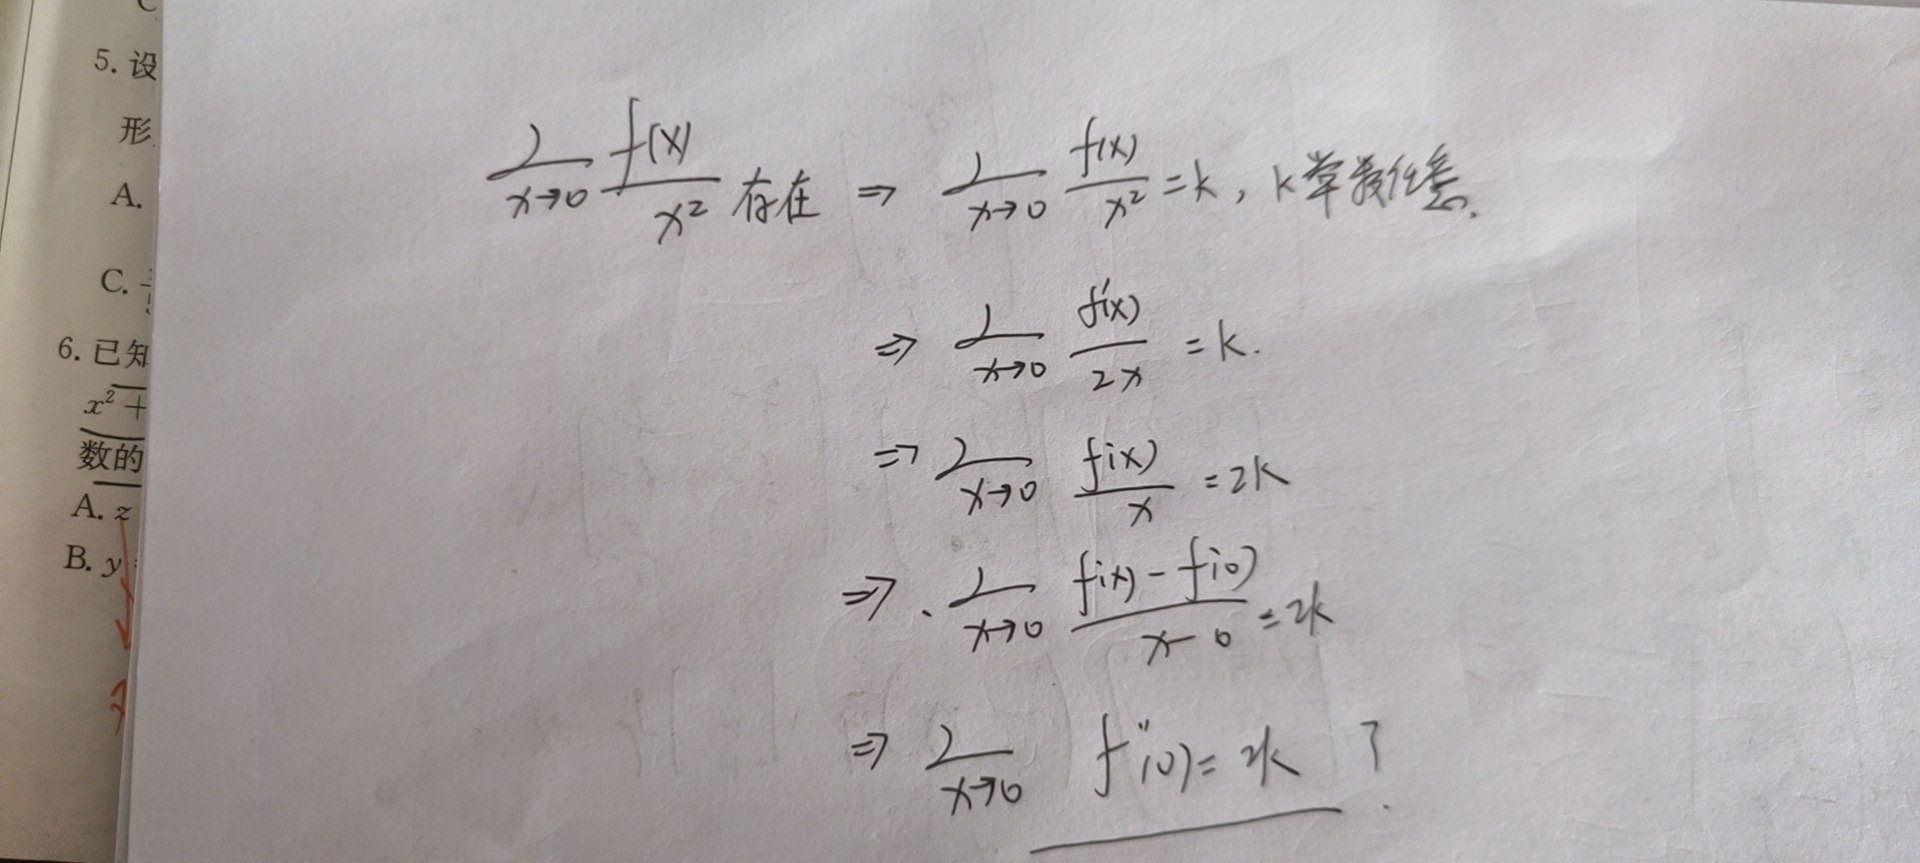 C
5. 设
形
A.
C.
6. 已知
x² +
数的
A. z
B. y
lim x→0 f(x)/x² 存在 ⇒ lim x→0 f(x)/x² = k, k常数任意.
⇒ lim x→0 f'(x)/2x = k.
⇒ lim x→0 f'(x)/x = 2k
⇒ . lim x→0 f'(x) - f'(0)/x - 0 = 2k
⇒ lim x→0 f''(0) = 2k ?